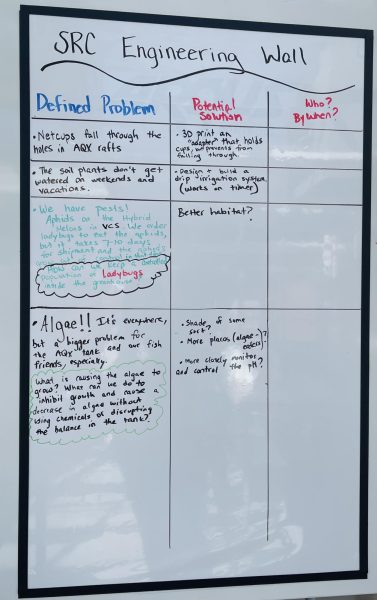 SRC Engineering Wall
Defined Problem
Potential
Solution
Who?
By When?
• Netcups fall through the
holes in AQX rafts
• 3D print an
"adapter" that holds
cups, prevents from
falling through
• The soil plants don't get
watered on weekends and
vacations.
• Design + build a
drip irrigation system
(works on timer)
• We have pests!
Aphids on the Hybrid
Melons in VCS. We order
ladybugs to eat the aphids,
but it takes 7-10 days
for shipment and the aphids
How can we keep a
population of Ladybugs
inside the greenhouse?
Better habitat?
• Algae!! It's everywhere,
but a bigger problem for
the AQX tank and our fish
friends, especially.
What is causing the algae to
grow? What can we do to
inhibit growth and cause a
decrease in algae without
adding chemicals or disrupting
the balance in the tank?
• Shade of some
sort?
• More places (algae-eaters)?
• More closely monitor
and control the pH?